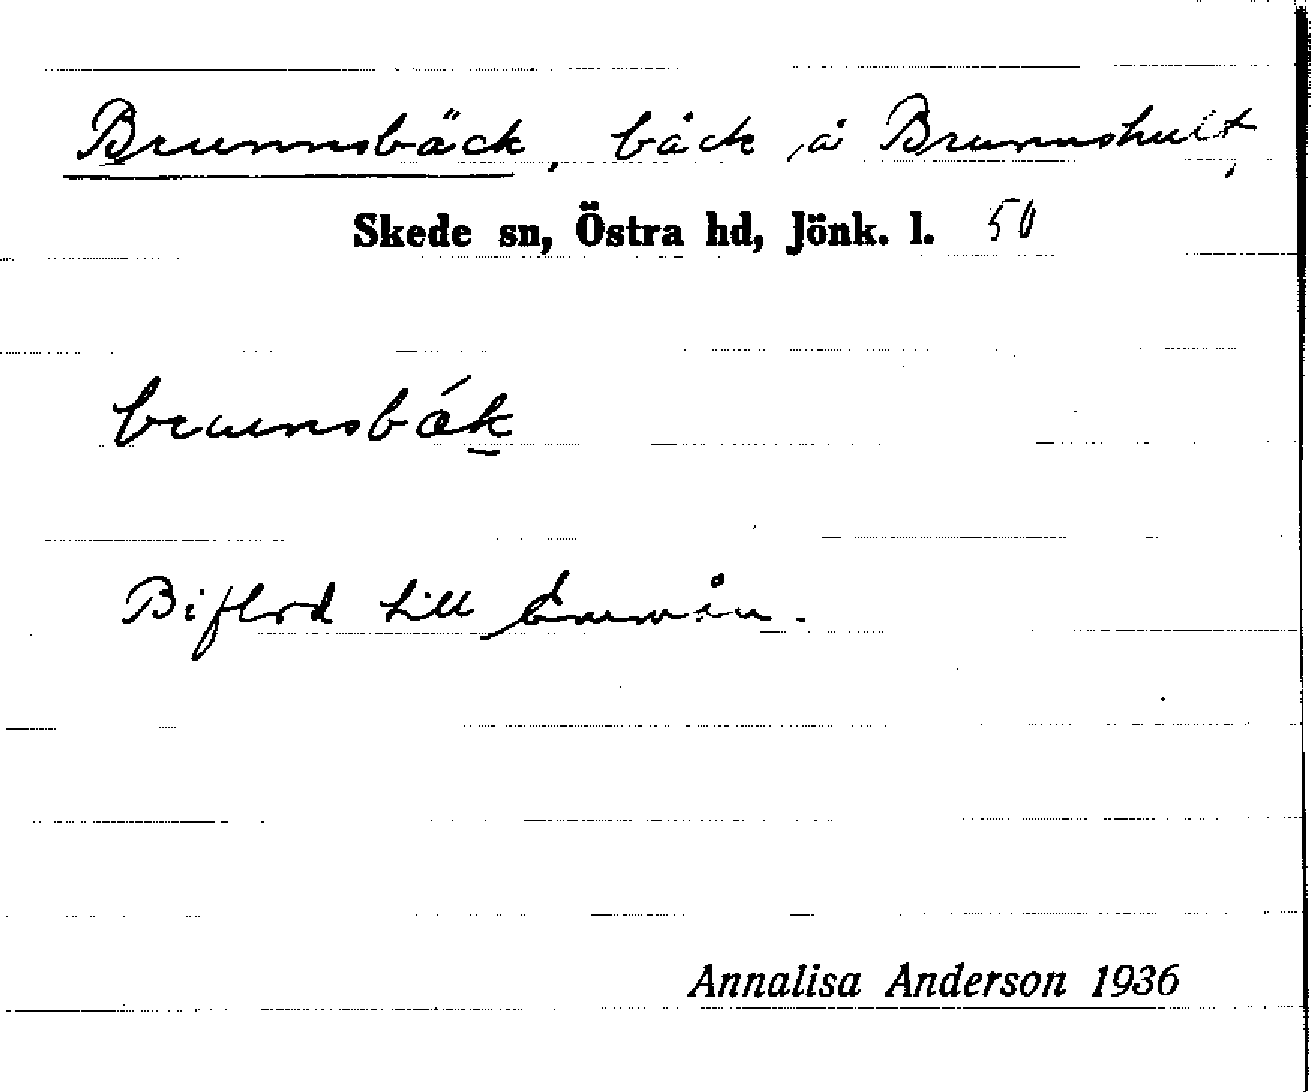 Brunnsbäck, bäck å Brunnshult,
Skede sn, Östra hd, Jönk. l. 50
brunsbák
Biflod till Emån.
Annalisa Anderson 1936